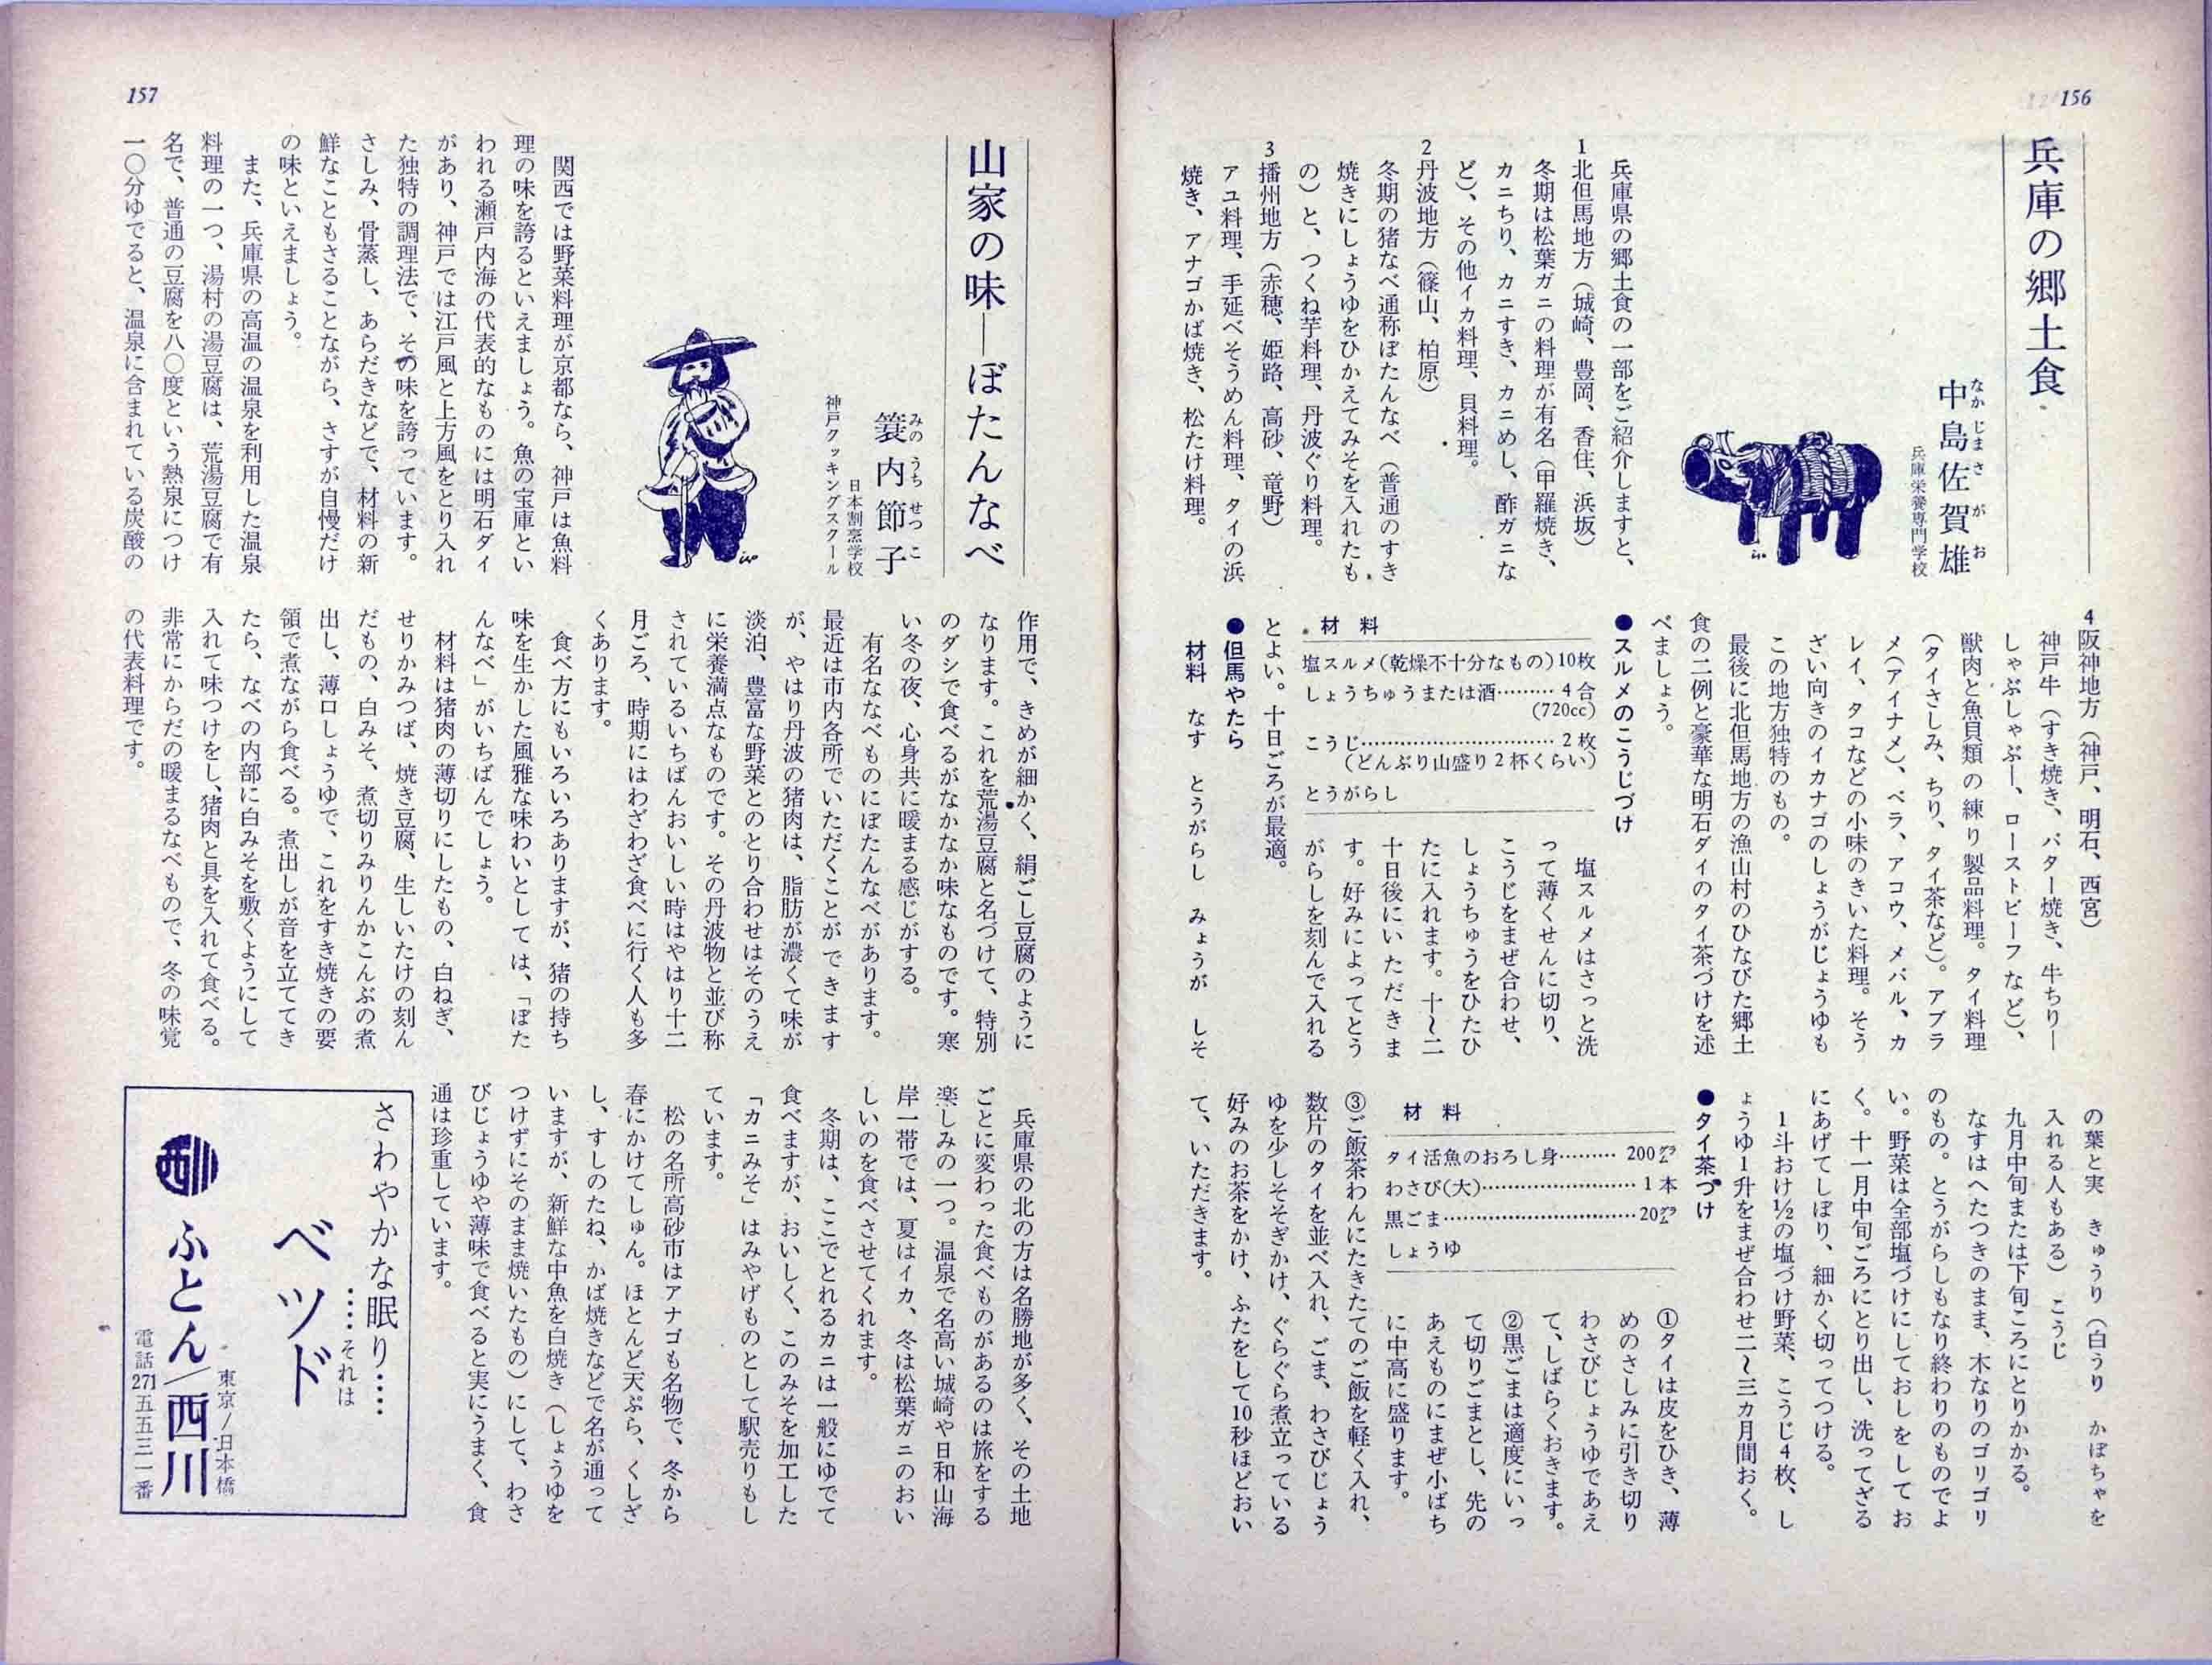 156
兵庫の郷土食
中島佐賀雄
なかじまさがお
兵庫栄養専門学校
兵庫県の郷土食の一部をご紹介しますと、
1北但馬地方（城崎、豊岡、香住、浜坂）
冬期は松葉ガニの料理が有名（甲羅焼き、
カニちり、カニすき、カニめし、酢ガニな
ど）、その他イカ料理、貝料理。
2丹波地方（篠山、柏原）
冬期の猪なべ通称ぼたんなべ（普通のすき
焼きにしょうゆをひかえてみそを入れたも
の）と、つくね芋料理、丹波ぐり料理。
3播州地方（赤穂、姫路、高砂、竜野）
アユ料理、手延べそうめん料理、タイの浜
焼き、アナゴかば焼き、松たけ料理。
4阪神地方（神戸、明石、西宮）
神戸牛（すき焼き、バター焼き、牛ちり—
しゃぶしゃぶ—、ローストビーフなど）、
獣肉と魚貝類の練り製品料理。タイ料理
（タイさしみ、ちり、タイ茶など）。アブラ
メ（アイナメ）、ベラ、アコウ、メバル、カ
レイ、タコなどの小味のきいた料理。そう
ざい向きのイカナゴのしょうがじょうゆも
この地方独特のもの。
最後に北但馬地方の漁山村のひなびた郷土
食の二例と豪華な明石ダイのタイ茶づけを述
べましょう。
●スルメのこうじづけ
材料
塩スルメ（乾燥不十分なもの）10枚
しょうちゅうまたは酒………4合
（720cc）
こうじ…………………………2枚
（どんぶり山盛り2杯くらい）
とうがらし
塩スルメはさっと洗
って薄くせんに切り、
こうじをまぜ合わせ、
しょうちゅうをひたひ
たに入れます。十〜二
十日後にいただきま
す。好みによってとう
がらしを刻んで入れる
とよい。十日ごろが最適。
●但馬やたら
材料　なす　とうがらし　みょうが　しそ
の葉と実　きゅうり（白うり　かぼちゃを
入れる人もある）　こうじ
九月中旬または下旬ころにとりかかる。
なすはへたつきのまま、木なりのゴリゴリ
のもの。とうがらしもなり終わりのものでよ
い。野菜は全部塩づけにしておしをしてお
く。十一月中旬ごろにとり出し、洗ってざる
にあげてしぼり、細かく切ってつける。
1斗おけ½の塩づけ野菜、こうじ4枚、し
ょうゆ1升をまぜ合わせ二〜三カ月間おく。
●タイ茶づけ
材料
タイ活魚のおろし身………200㌘
わさび（大）……………………1本
黒ごま…………………………20㌘
しょうゆ
①タイは皮をひき、薄
めのさしみに引き切り
わさびじょうゆであえ
て、しばらくおきます。
②黒ごまは適度にいっ
て切りごまとし、先の
あえものにまぜ小ばち
に中高に盛ります。
③ご飯茶わんにたきたてのご飯を軽く入れ、
数片のタイを並べ入れ、ごま、わさびじょう
ゆを少しそそぎかけ、ぐらぐら煮立っている
好みのお茶をかけ、ふたをして10秒ほどおい
て、いただきます。
157
山家の味—ぼたんなべ
簑内節子
みのうちせつこ
日本割烹学校
神戸クッキングスクール
関西では野菜料理が京都なら、神戸は魚料
理の味を誇るといえましょう。魚の宝庫とい
われる瀬戸内海の代表的なものには明石ダイ
があり、神戸では江戸風と上方風をとり入れ
た独特の調理法で、その味を誇っています。
さしみ、骨蒸し、あらだきなどで、材料の新
鮮なこともさることながら、さすが自慢だけ
の味といえましょう。
また、兵庫県の高温の温泉を利用した温泉
料理の一つ、湯村の湯豆腐は、荒湯豆腐で有
名で、普通の豆腐を八〇度という熱泉につけ
一〇分ゆでると、温泉に含まれている炭酸の
作用で、きめが細かく、絹ごし豆腐のように
なります。これを荒湯豆腐と名づけて、特別
のダシで食べるがなかなか味なものです。寒
い冬の夜、心身共に暖まる感じがする。
有名ななべものにぼたんなべがあります。
最近は市内各所でいただくことができます
が、やはり丹波の猪肉は、脂肪が濃くて味が
淡泊、豊富な野菜とのとり合わせはそのうえ
に栄養満点なものです。その丹波物と並び称
されているいちばんおいしい時はやはり十二
月ごろ、時期にはわざわざ食べに行く人も多
くあります。
食べ方にもいろいろありますが、猪の持ち
味を生かした風雅な味わいとしては、「ぼた
んなべ」がいちばんでしょう。
材料は猪肉の薄切りにしたもの、白ねぎ、
せりかみつば、焼き豆腐、生しいたけの刻ん
だもの、白みそ、煮切りみりんかこんぶの煮
出し、薄口しょうゆで、これをすき焼きの要
領で煮ながら食べる。煮出しが音を立ててき
たら、なべの内部に白みそを敷くようにして
入れて味つけをし、猪肉と具を入れて食べる。
非常にからだの暖まるなべもので、冬の味覚
の代表料理です。
兵庫県の北の方は名勝地が多く、その土地
ごとに変わった食べものがあるのは旅をする
楽しみの一つ。温泉で名高い城崎や日和山海
岸一帯では、夏はイカ、冬は松葉ガニのおい
しいのを食べさせてくれます。
冬期は、ここでとれるカニは一般にゆでて
食べますが、おいしく、このみそを加工した
「カニみそ」はみやげものとして駅売りもし
ています。
松の名所高砂市はアナゴも名物で、冬から
春にかけてしゅん。ほとんど天ぷら、くしざ
し、すしのたね、かば焼きなどで名が通って
いますが、新鮮な中魚を白焼き（しょうゆを
つけずにそのまま焼いたもの）にして、わさ
びじょうゆや薄味で食べると実にうまく、食
通は珍重しています。
さわやかな眠り……
……それは
ベッド
ふとん／西川
東京／日本橋
電話271五五三一番
西川